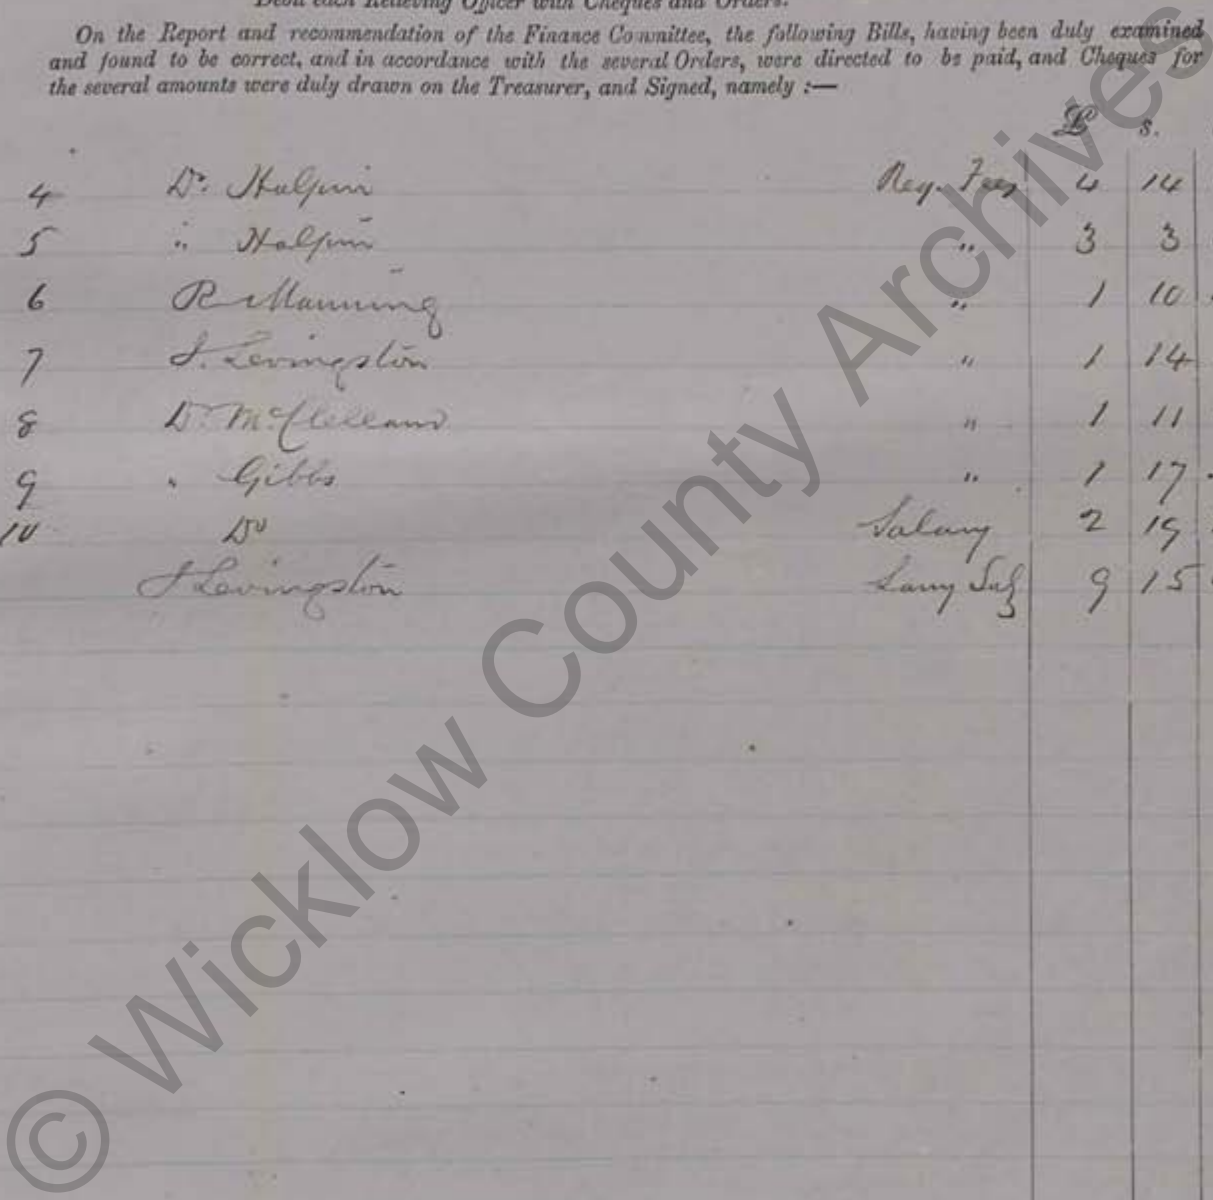 each Relieving Officer with Cheques and Orders.
On the Report and recommendation of the Finance Committee, the following Bills, having been duly examined
and found to be correct, and in accordance with the several Orders, were directed to be paid, and Cheques for
the several amounts were duly drawn on the Treasurer, and Signed, namely :—
£ s.
4 Dr. Halpin Reg. Fees 4 14
5 " Halpin " 3 3
6 R Manning " 1 10
7 J. Levingston " 1 14
8 Dr. McClelland " 1 11
9 " Gibbs " 1 17
10 Do Salary 2 19
J Levingston 9 15
© Wicklow County Archives